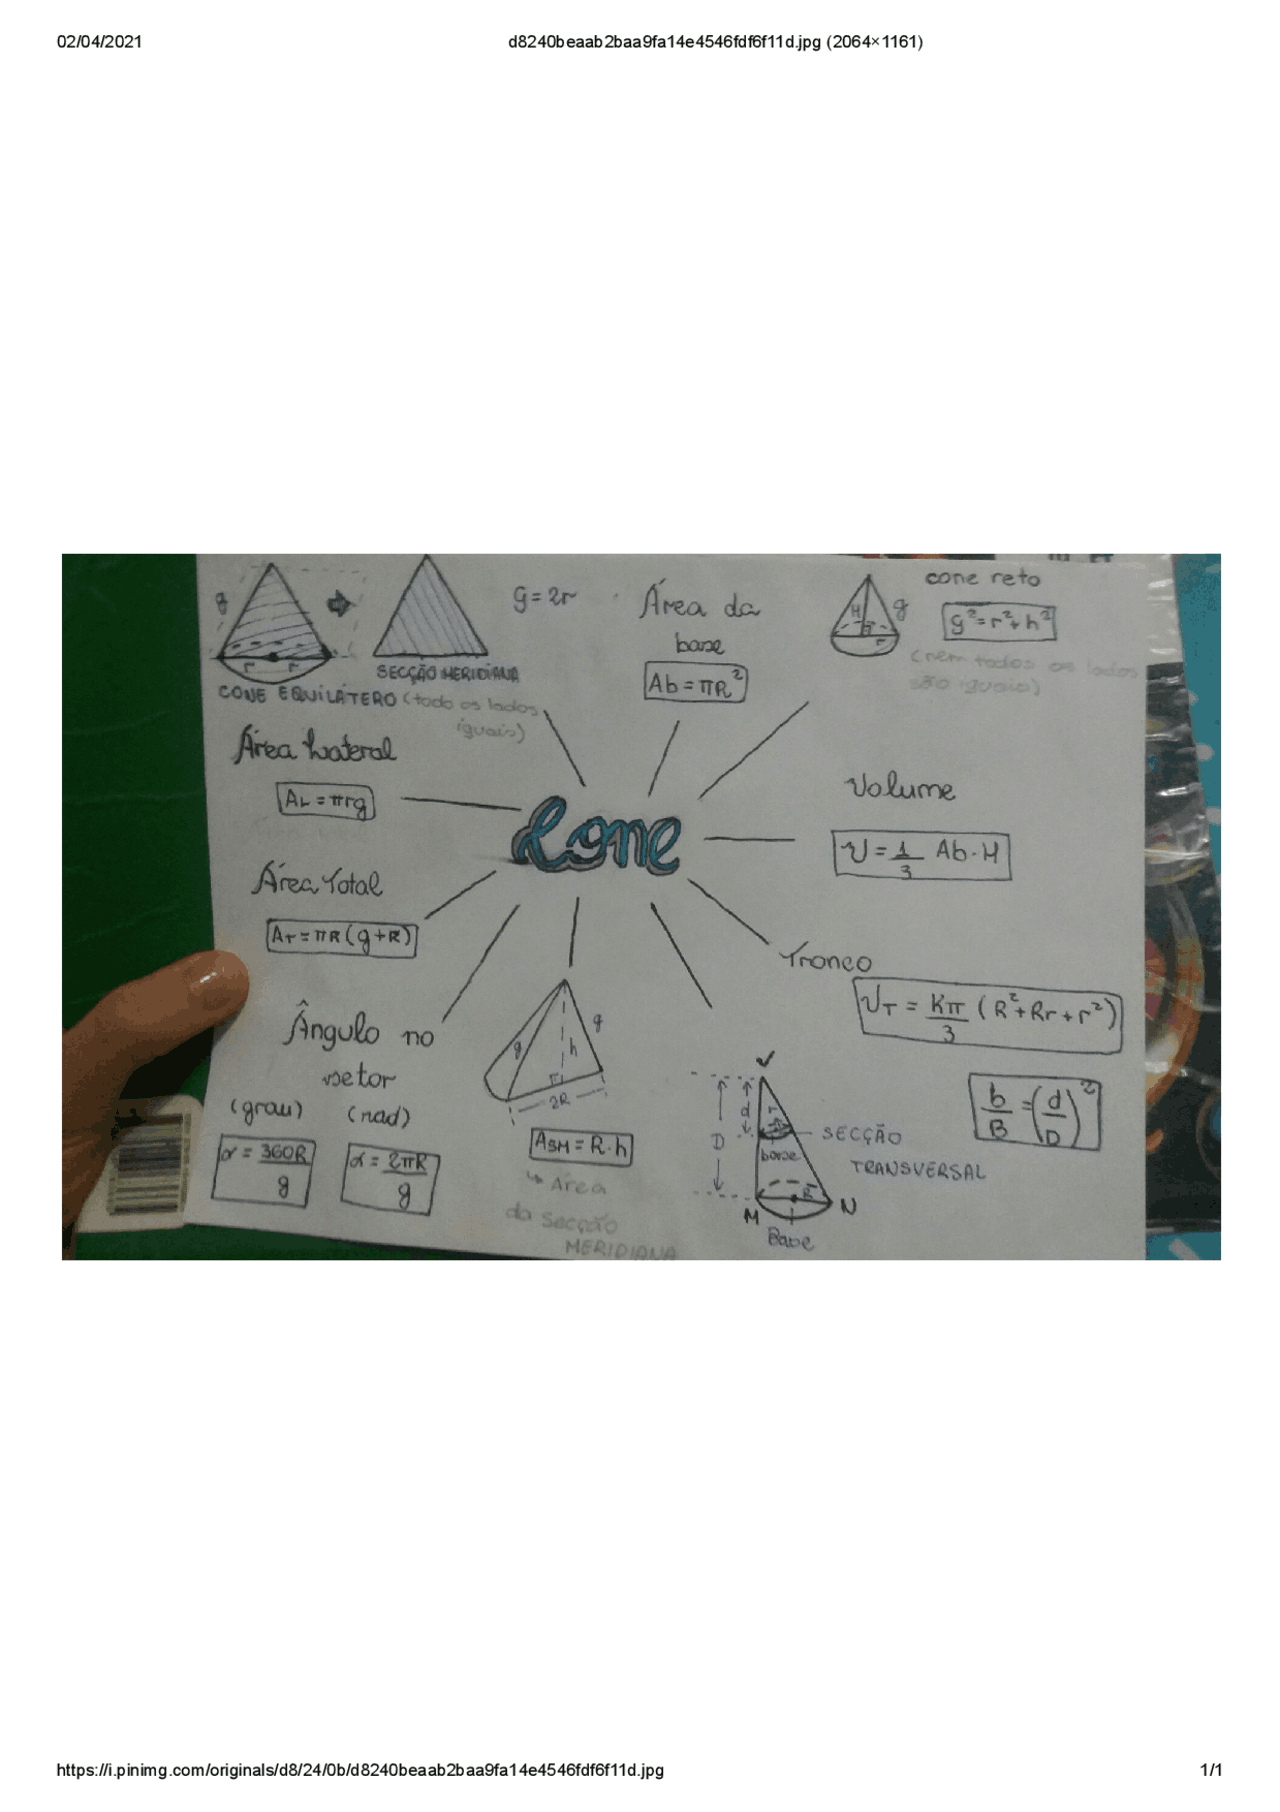 02/04/2021
d8240beaab2baa9fa14e4546fdf6f11d.jpg (2064×1161)
g
r r
CONE EQUILÁTERO (todo os lados iguais)
SECÇÃO MERIDIANA
g = 2r
Área da
base
Ab = πR²
H g
r
cone reto
g² = r² + h²
(nem todos os lados
são iguais)
Área Lateral
AL = πrg
Cone
Volume
V = 1/3 Ab · H
Área Total
AT = πR (g + R)
Tronco
VT = Kπ/3 (R² + Rr + r²)
b/B = (d/D)²
Ângulo no
setor
(grau) (rad)
α = 360R/g
α = 2πR/g
g h g
2R
ASM = R · h
↳ Área
da secção
MERIDIANA
V
D d r
base
SECÇÃO
TRANSVERSAL
R
M N
Base
https://i.pinimg.com/originals/d8/24/0b/d8240beaab2baa9fa14e4546fdf6f11d.jpg
1/1